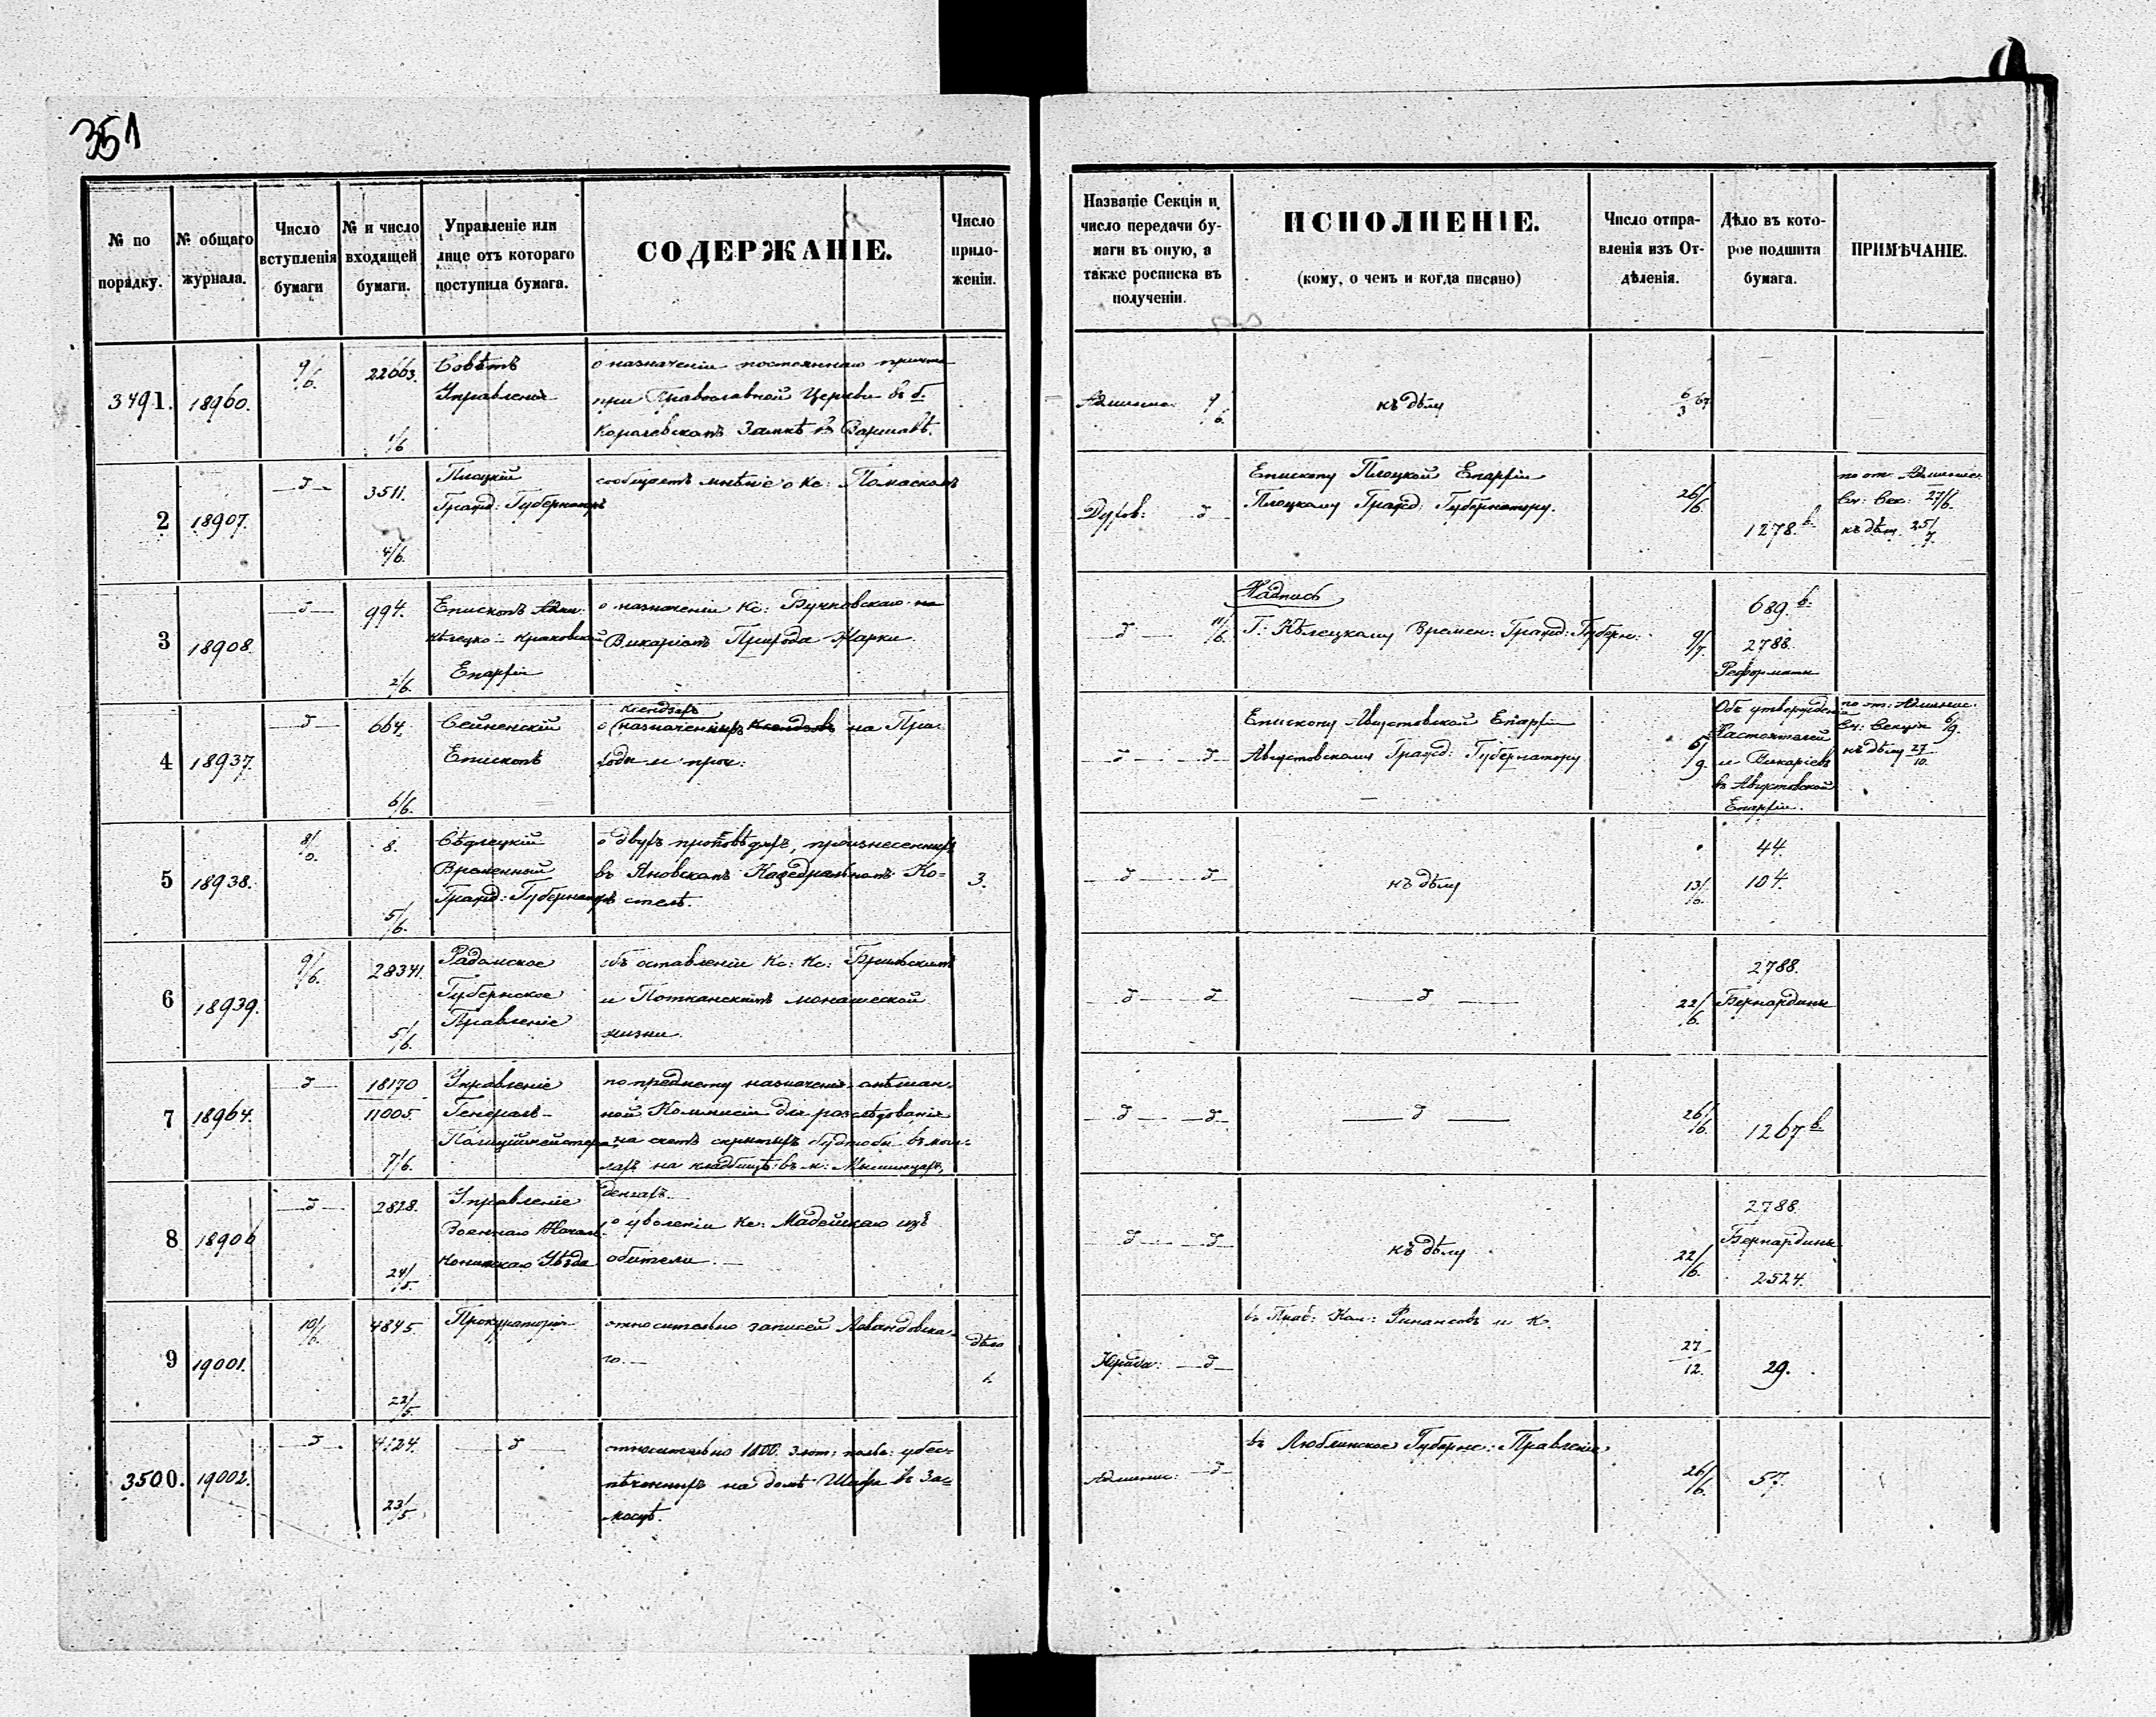 351
№ по порядку.
№ общаго журнала.
Число вступленія бумаги
№ и число входящей бумаги.
Управленіе или лице отъ котораго поступила бумага.
СОДЕРЖАНІЕ.
Число прило-
женіи.
Названіе Секціи и
число передачи бу-
маги въ оную, а
также росписка въ
полученіи.
ИСПОЛНЕНІЕ.
(кому, о чемъ и когда писано)
Число отпра-
вленія изъ От-
дѣленія.
Дѣло въ кото-
рое подшита
бумага.
ПРИМѢЧАНІЕ.
3491. 18960. 9/6. 22663. 1/6
Совѣтъ
Управленія
о назначеніи постояннаго причта
при Православной Церкви въ б.
Королевскомъ Замкѣ въ Варшавѣ.
9/6.
къ дѣлу
2 18907. 3511. 4/6.
Плоцкій
Гражд: Губернаторъ
сообщаетъ мнѣніе о Кс:
Духов:
Епископу Плоцкой Епархіи
Плоцкому Гражд: Губернатору.
26/6.
1278.
27/6.
къ дѣлу 25/7.
3 18908. 994. 2/6.
Епископъ
Кѣлецко-Краковской
Епархіи
о назначеніи Кс: Бучковскаго на
Викаріатъ Прихода Жарки.
11/6.
Надпись
Г. Кѣлецкому Времен: Гражд: Губерн:
9/7.
689.
2788.
Реформаты
4 18937. 664. 6/6.
Сейненскій
Епископъ
ксендзахъ
о назначенныхъ на При-
ходы и проч:
Епископу Августовской Епархіи
Августовскому Гражд: Губернатору
6/9.
Объ утвержденіи
Настоятелей
и Викаріевъ
въ Августовской
Епархіи.
6/9.
къ дѣлу 27/10.
5 18938. 8. 5/6.
Сѣдлецкій
Временный
Гражд: Губернаторъ
о двухъ проповѣдяхъ, произнесенныхъ
въ Яновскомъ Кафедральномъ Ко-
стелѣ.
3.
къ дѣлу
13/6.
44.
104.
6 18939. 9/6. 28341. 5/6.
Радомское
Губернское
Правленіе
объ оставленіи Кс: Кс:
и монашеской
жизни.
22/6.
2788.
Бернардины
7 18964. 18170
11005. 7/6.
Управленіе
Генералъ-
Полицiймейстера
по предмету назначенія смѣшан-
ной Коммисіи для разслѣдованія
на счетъ скрытыхъ будтобы въ моги-
лахъ на кладбищѣ въ м:
деньгахъ.
26/6.
1267
8 18906 2828. 24/5.
Управленіе
Военнаго Начал:
Конинскаго Уѣзда
о уволеніи Кс: изъ
обители.
къ дѣлу
22/6.
2788.
Бернардины
2524.
9 19001. 10/6. 4845. 22/5.
Прокураторія
относительно записей Левандовска-
го.
дѣло
1.
въ Прав: Ком: Финансовъ и К.
27/12.
29.
3500. 19002. 4124. 23/5
относительно злот: поль: обез-
печенныхъ на домѣ въ За-
мосцѣ.
въ Люблинское Губерн: Правленіе
26/6.
57.